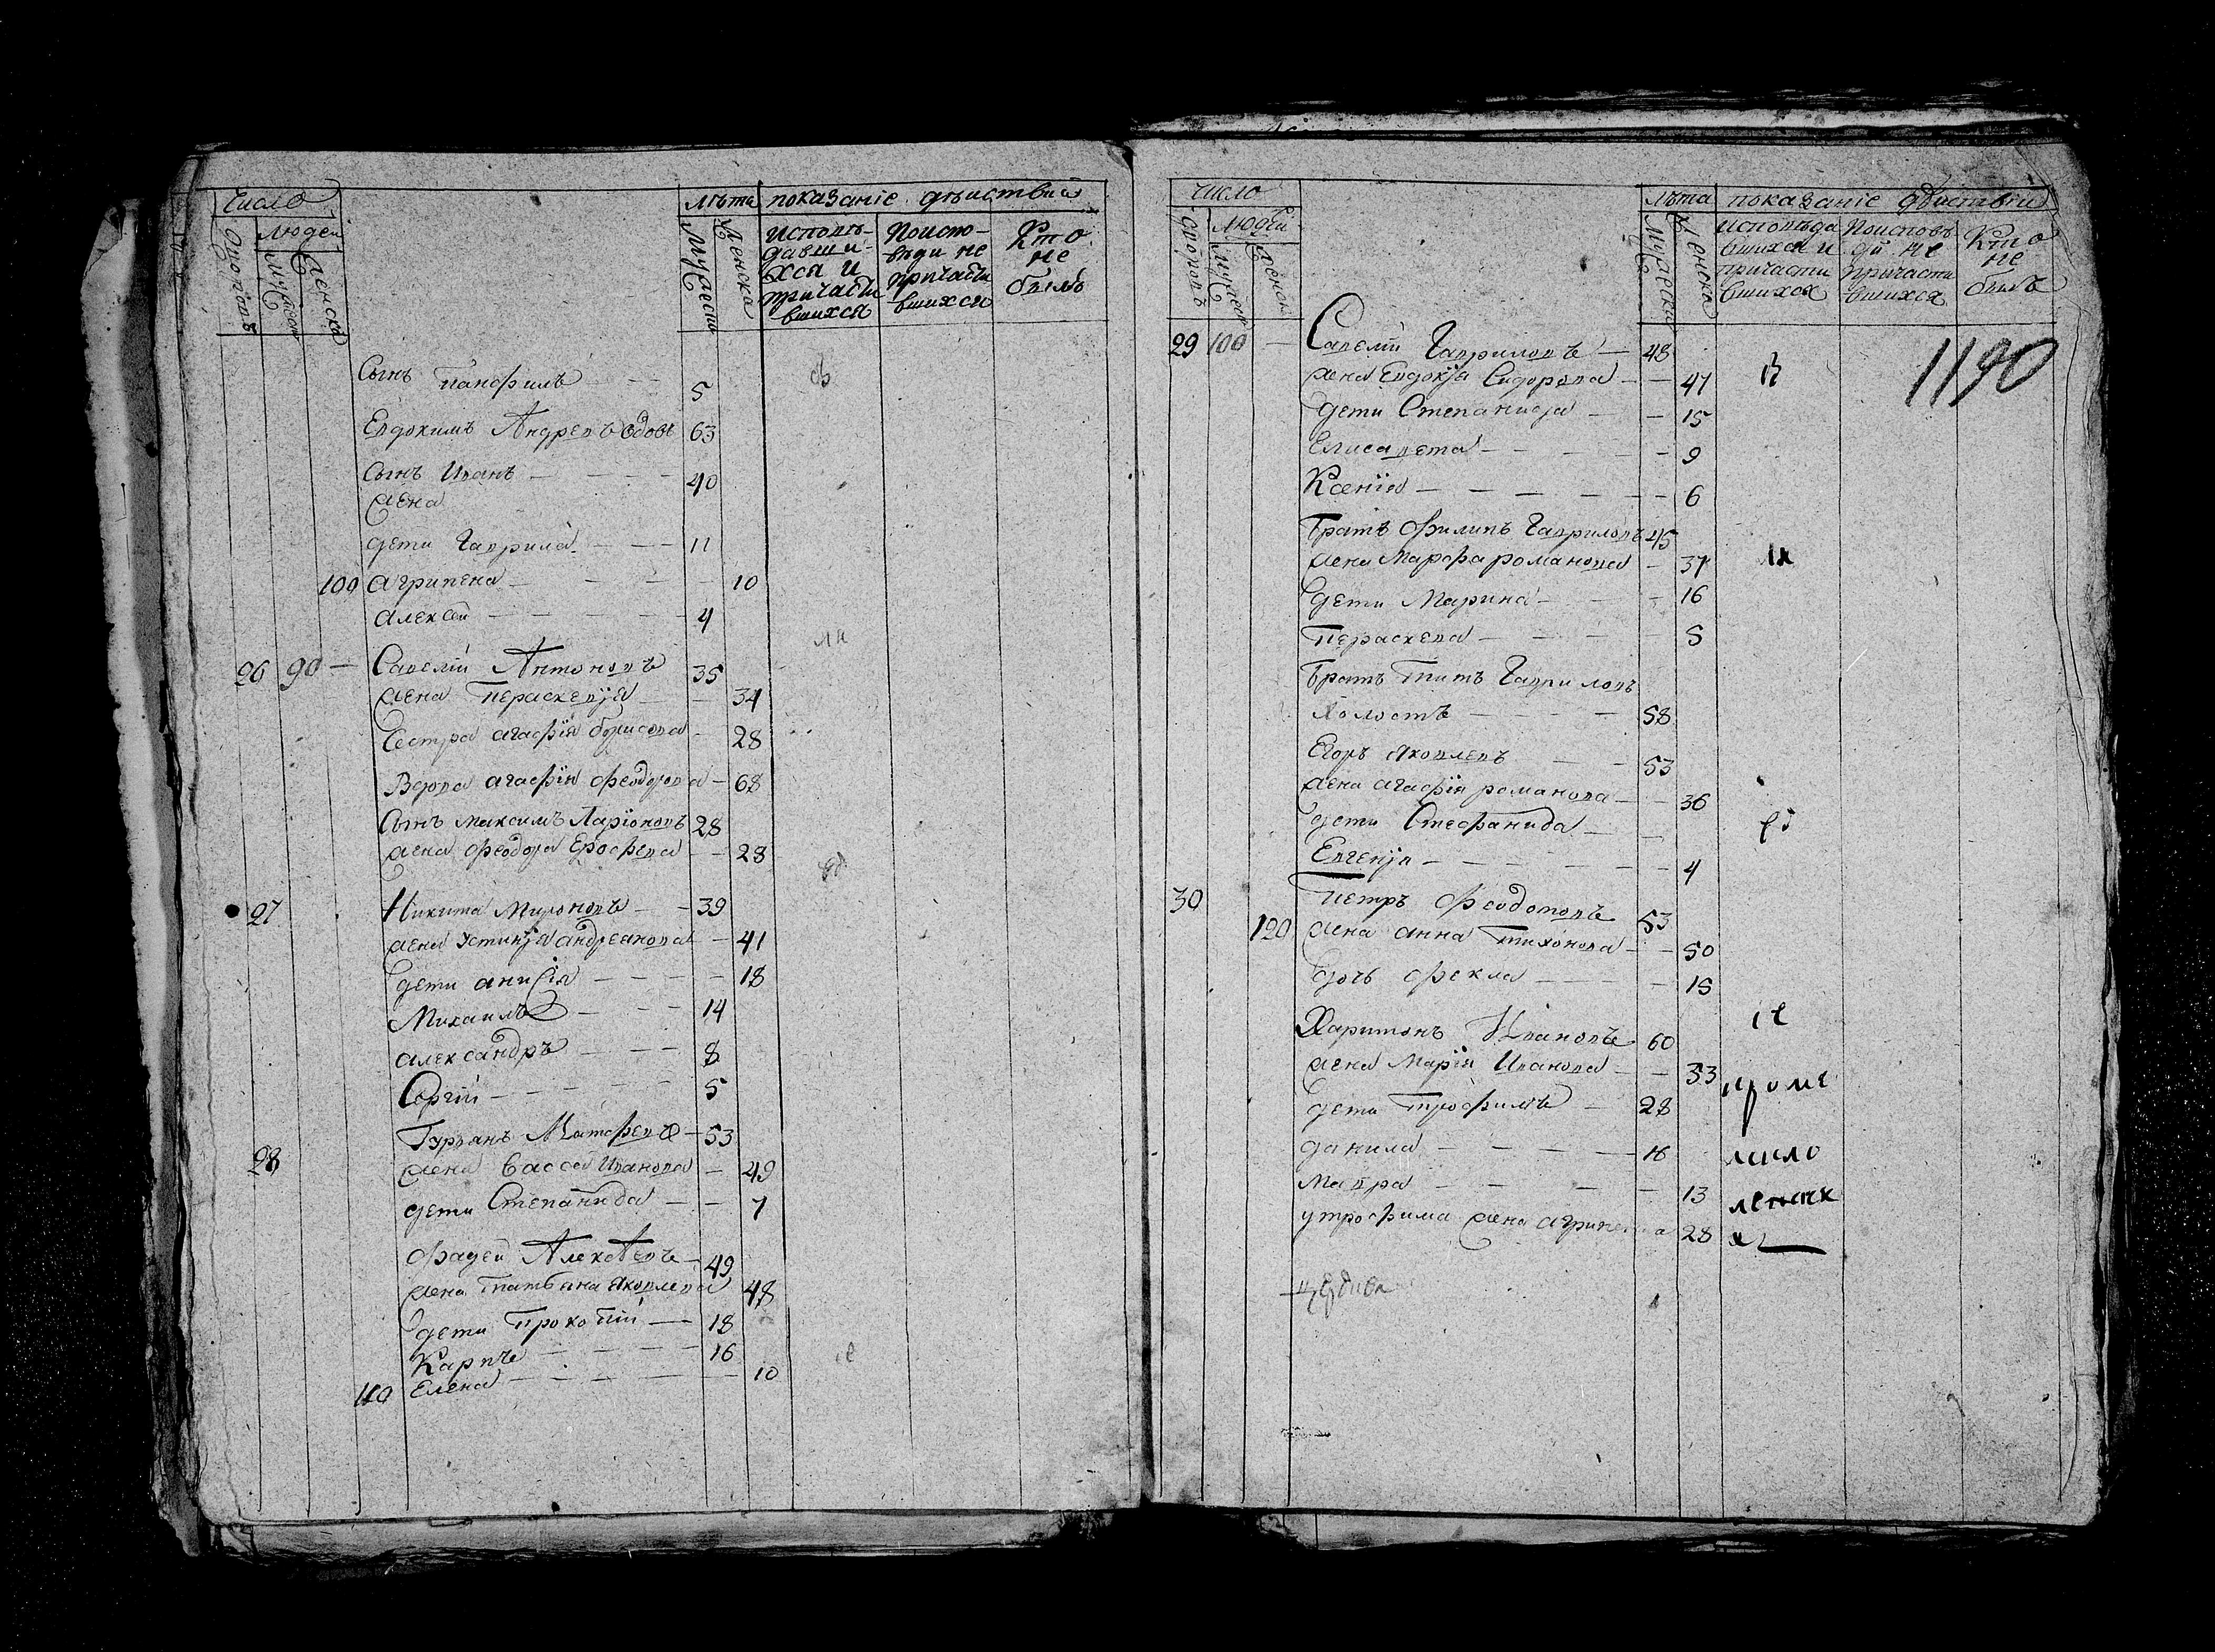 Число
Людей
лѣта показаніе дѣиствий
Дворовъ
Мужеск
Женска
Мужеска
Женска
Исповѣ-
давши-
хся и
причасти
вшихся
Поиспо-
вѣди не
причасти
вшихся
Кто
не
былъ
Сынъ Панфилъ 5
св
Евдокимъ Андревъ вдовъ 63
Сынъ Иванъ 40
жена
дети Гаврила 11
100 агрипена 10
алексей 4
26 90 Савелiй Антоновъ 35
жена Пераскевiя 34
Сестра агафiя борисова 28
Вдова агафiя Феодорова 68
Сынъ Максимъ Ларiоновъ 28
жена Феодора Ерофева 28
27 Никита Мироновъ 39
жена Устинiя андреянова 41
дети анисiя 18
Михаилъ 14
александръ 8
Сергiй 5
28 Гурьянъ Матфевъ 53
жена васса Иванова 49
дети Степанида 7
Фадей Алексѣевъ 49
жена Татьяна яковлева 48
дети Прокопiй 18
Карпъ 16
110 Елена 10
число
Людей
лѣта показанiе дѣиствий
дворовъ
Мужеск
Женск
Мужеска
Женска
исповѣда
вшихся и
причасти
вшихся
Поисповѣ
ди не
причасти
вшихся
Кто
не
былъ
1190
29 100 Савелiй Гавриловъ 48
жена Евдокiя Сидорова 47
дети Степанида 15
Елисавета 9
Ксенiя 6
братъ Филипъ Гавриловъ 45
жена Марфа романова 37
дети Марина 16
Пераскева 5
братъ Титъ Гавриловъ
холостъ 58
Егоръ яковлевъ 53
жена агафiя романова 36
дети Стефанида
Евгенiя 4
30 петръ Феодотовъ 53
120 жена анна тихонова 50
дочь Фекла 15
Харитонъ Ивановъ 60
жена Марiя Иванова 33
дети трофимъ 28
данила 16
Мавра 13
у трофима жена агрипена 28
кроме
мало
летних